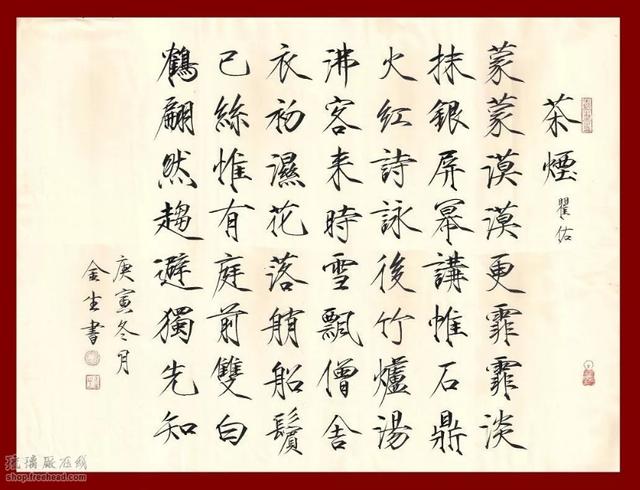 茶煙 瞿佑
蒙蒙漠漠更霏霏淡
抹銀屏冪講帷石鼎
火紅詩詠後竹爐湯
沸客来時雪飄僧舍
衣初濕花落艄船鬢
已絲惟有庭前雙白
鶴翩然趨避獨先知
庚寅冬月
金生書
琉璃厰在线
shop.freehead.com